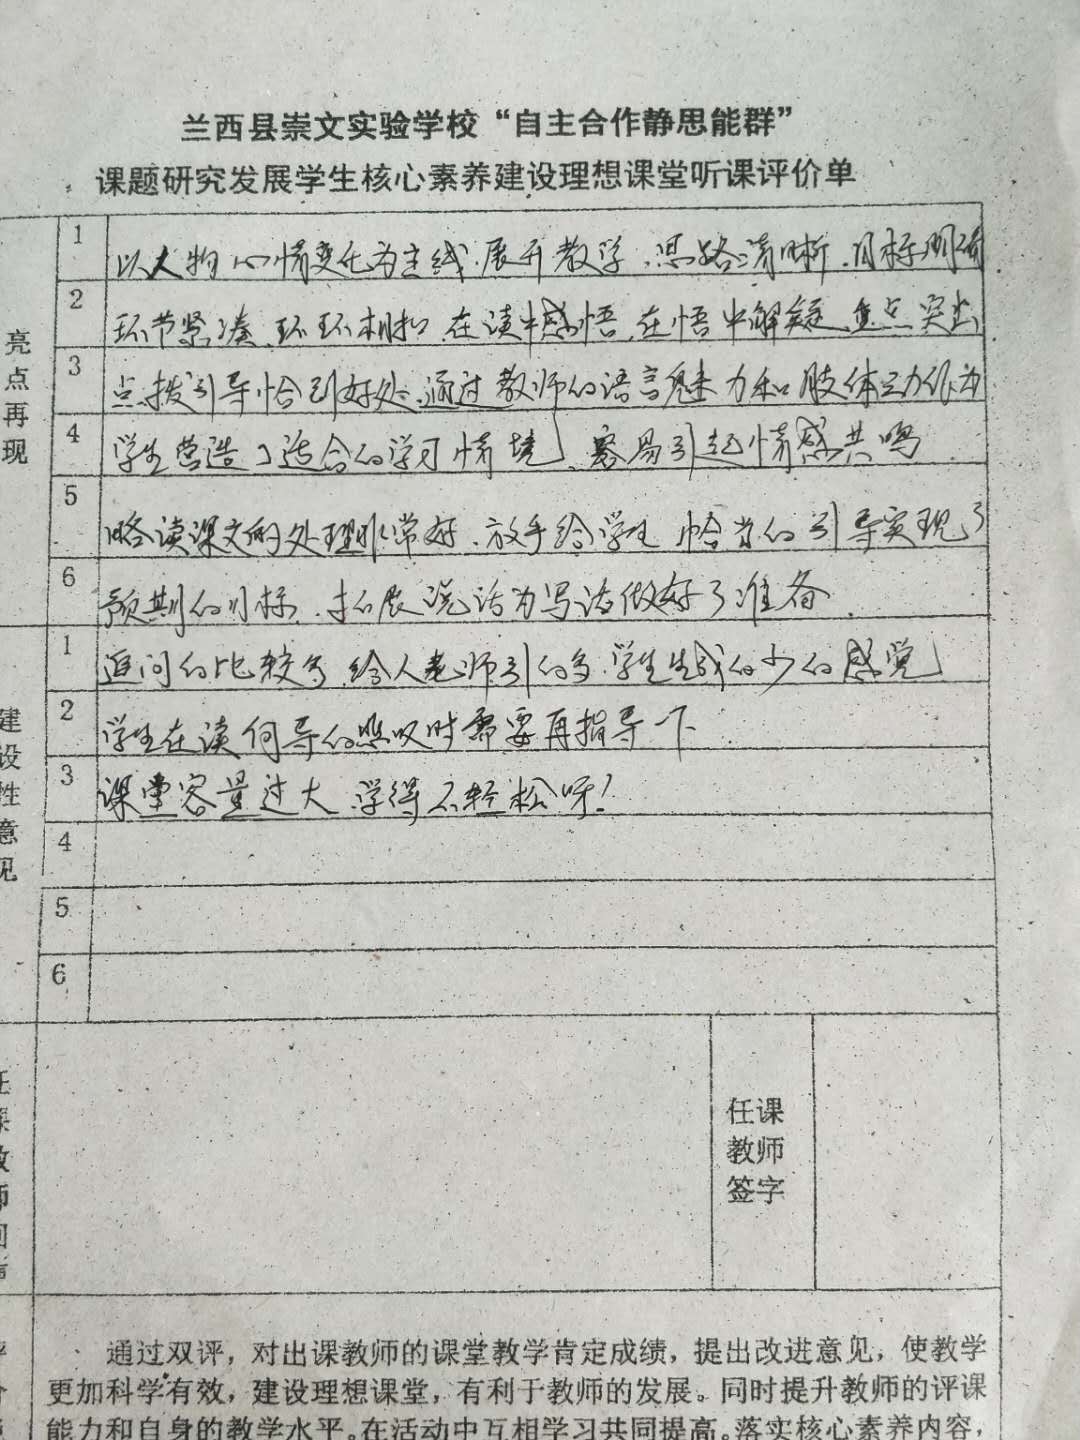 兰西县崇文实验学校“自主合作静思能群”
课题研究发展学生核心素养建设理想课堂听课评价单
亮点再现
1 以人物心情变化为主线.展开教学.思路清晰.目标明确
2 环节紧凑.环环相扣.在读中感悟.在悟中解疑.重点突出
3 点拨引导恰到好处.通过教师的语言魅力和肢体动作为
4 学生营造了适合的学习情境.容易引起情感共鸣
5 略读课文的处理非常好.放手给学生 恰当的引导实现了
6 预期的目标.拓展说话为写话做好了准备.
建设性意见
1 追问的比较多.给人老师引的多.学生生成的少的感觉
2 学生在读何导的悲叹时需要再指导一下
3 课堂容量过大.学得不轻松呀!
4
5
6
任课教师
任课
教师
签字
通过双评，对出课教师的课堂教学肯定成绩，提出改进意见，使教学
更加科学有效，建设理想课堂，有利于教师的发展。同时提升教师的评课
能力和自身的教学水平。在活动中互相学习共同提高。落实核心素养内容，